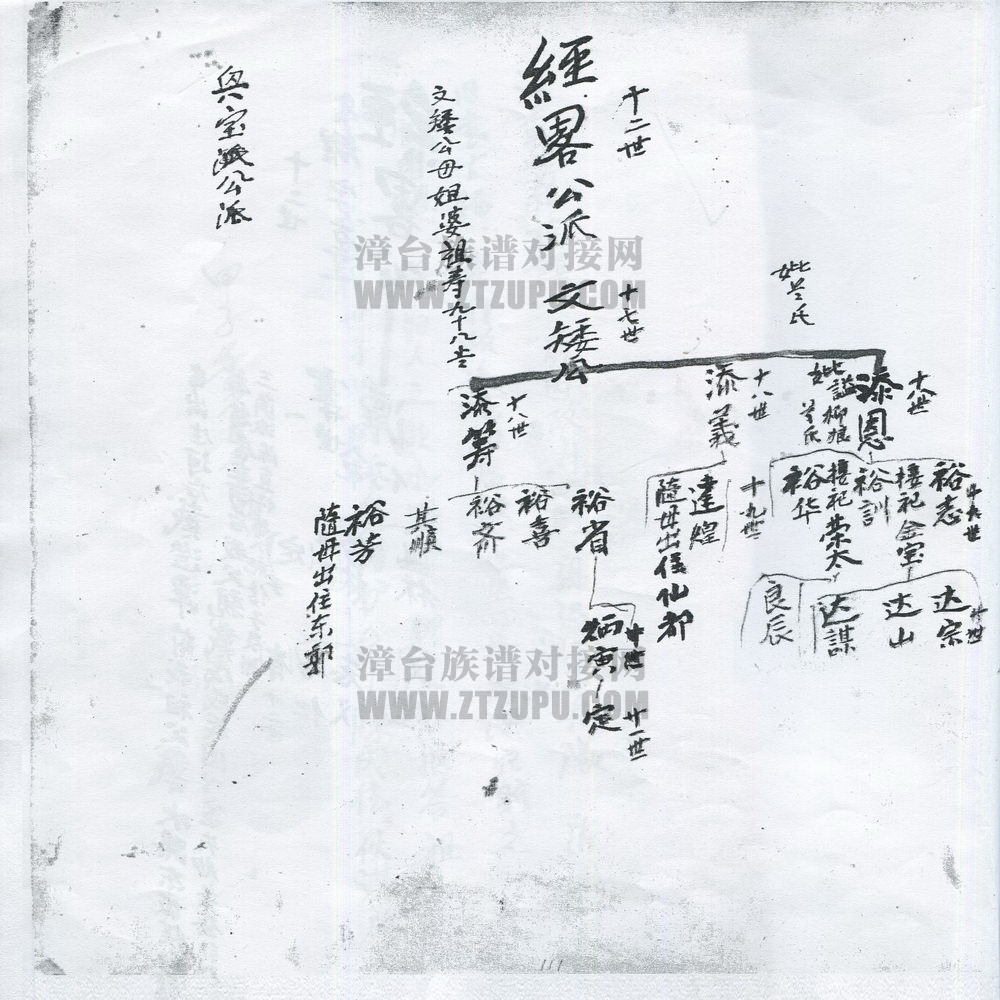 十二世
經畧公派 文矮公
十七世
文矮公母姐婆祖寿九十八吉
公派
妣兰氏
十八世
添恩
妣謚柳娘
兰氏
十八世
添義
十八世
添籌
十九世
裕志
金宝
裕訓
荣太
裕华
十九世
達煌
隨毋出住仙都
裕省
裕喜
裕齐
其順
裕芳
隨毋出住东郭
廿世
达宗
达山
达謀
良辰
廿世
炳寅
廿一世
定
漳台族谱对接网
WWW.ZTZUPU.COM
漳台族谱对接网
WWW.ZTZUPU.COM
111